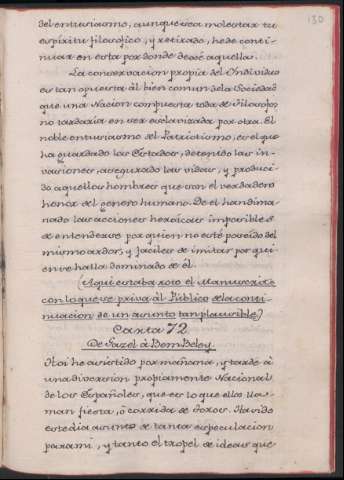 130
del entusiasmo, aunque sea molestar tu
espiritu filosofico, y retirado, he de conti-
nuar en esta por donde dexé aquella.
La conservacion propia del Individuo
es tan opuesta al bien comun de la Sociedad
que una Nacion compuesta toda de Filosofos,
no tardaria en ser esclavizada por otra. El
noble entusiasmo del Patriotismo, es el que
ha guardado los Estados, detenido las in-
vasiones, asegurado las vidas, y produci-
do aquellos hombres que son el verdadero
honor del genero humano. De el han dima-
nado las acciones heroicas imposibles
de entenderse por quien no esté poseido del
mismo ardor, y faciles de imitar por qui-
en se halla dominado de él.
(Aqui estaba roto el Manuscrito
con lo que se priva al Público de la conti-
nuacion de un asunto tan plausible.)
Carta 72
De Gazel à Ben Beley
Hoi he asistido por mañana, y tarde à
una diversion propiamente Nacional
de los Españoles, que es lo que ellos lla-
man fiesta, ò corrida de toros. Ha sido
este dia asunto de tanta especulacion
para mi, y tanto el tropel de ideas que